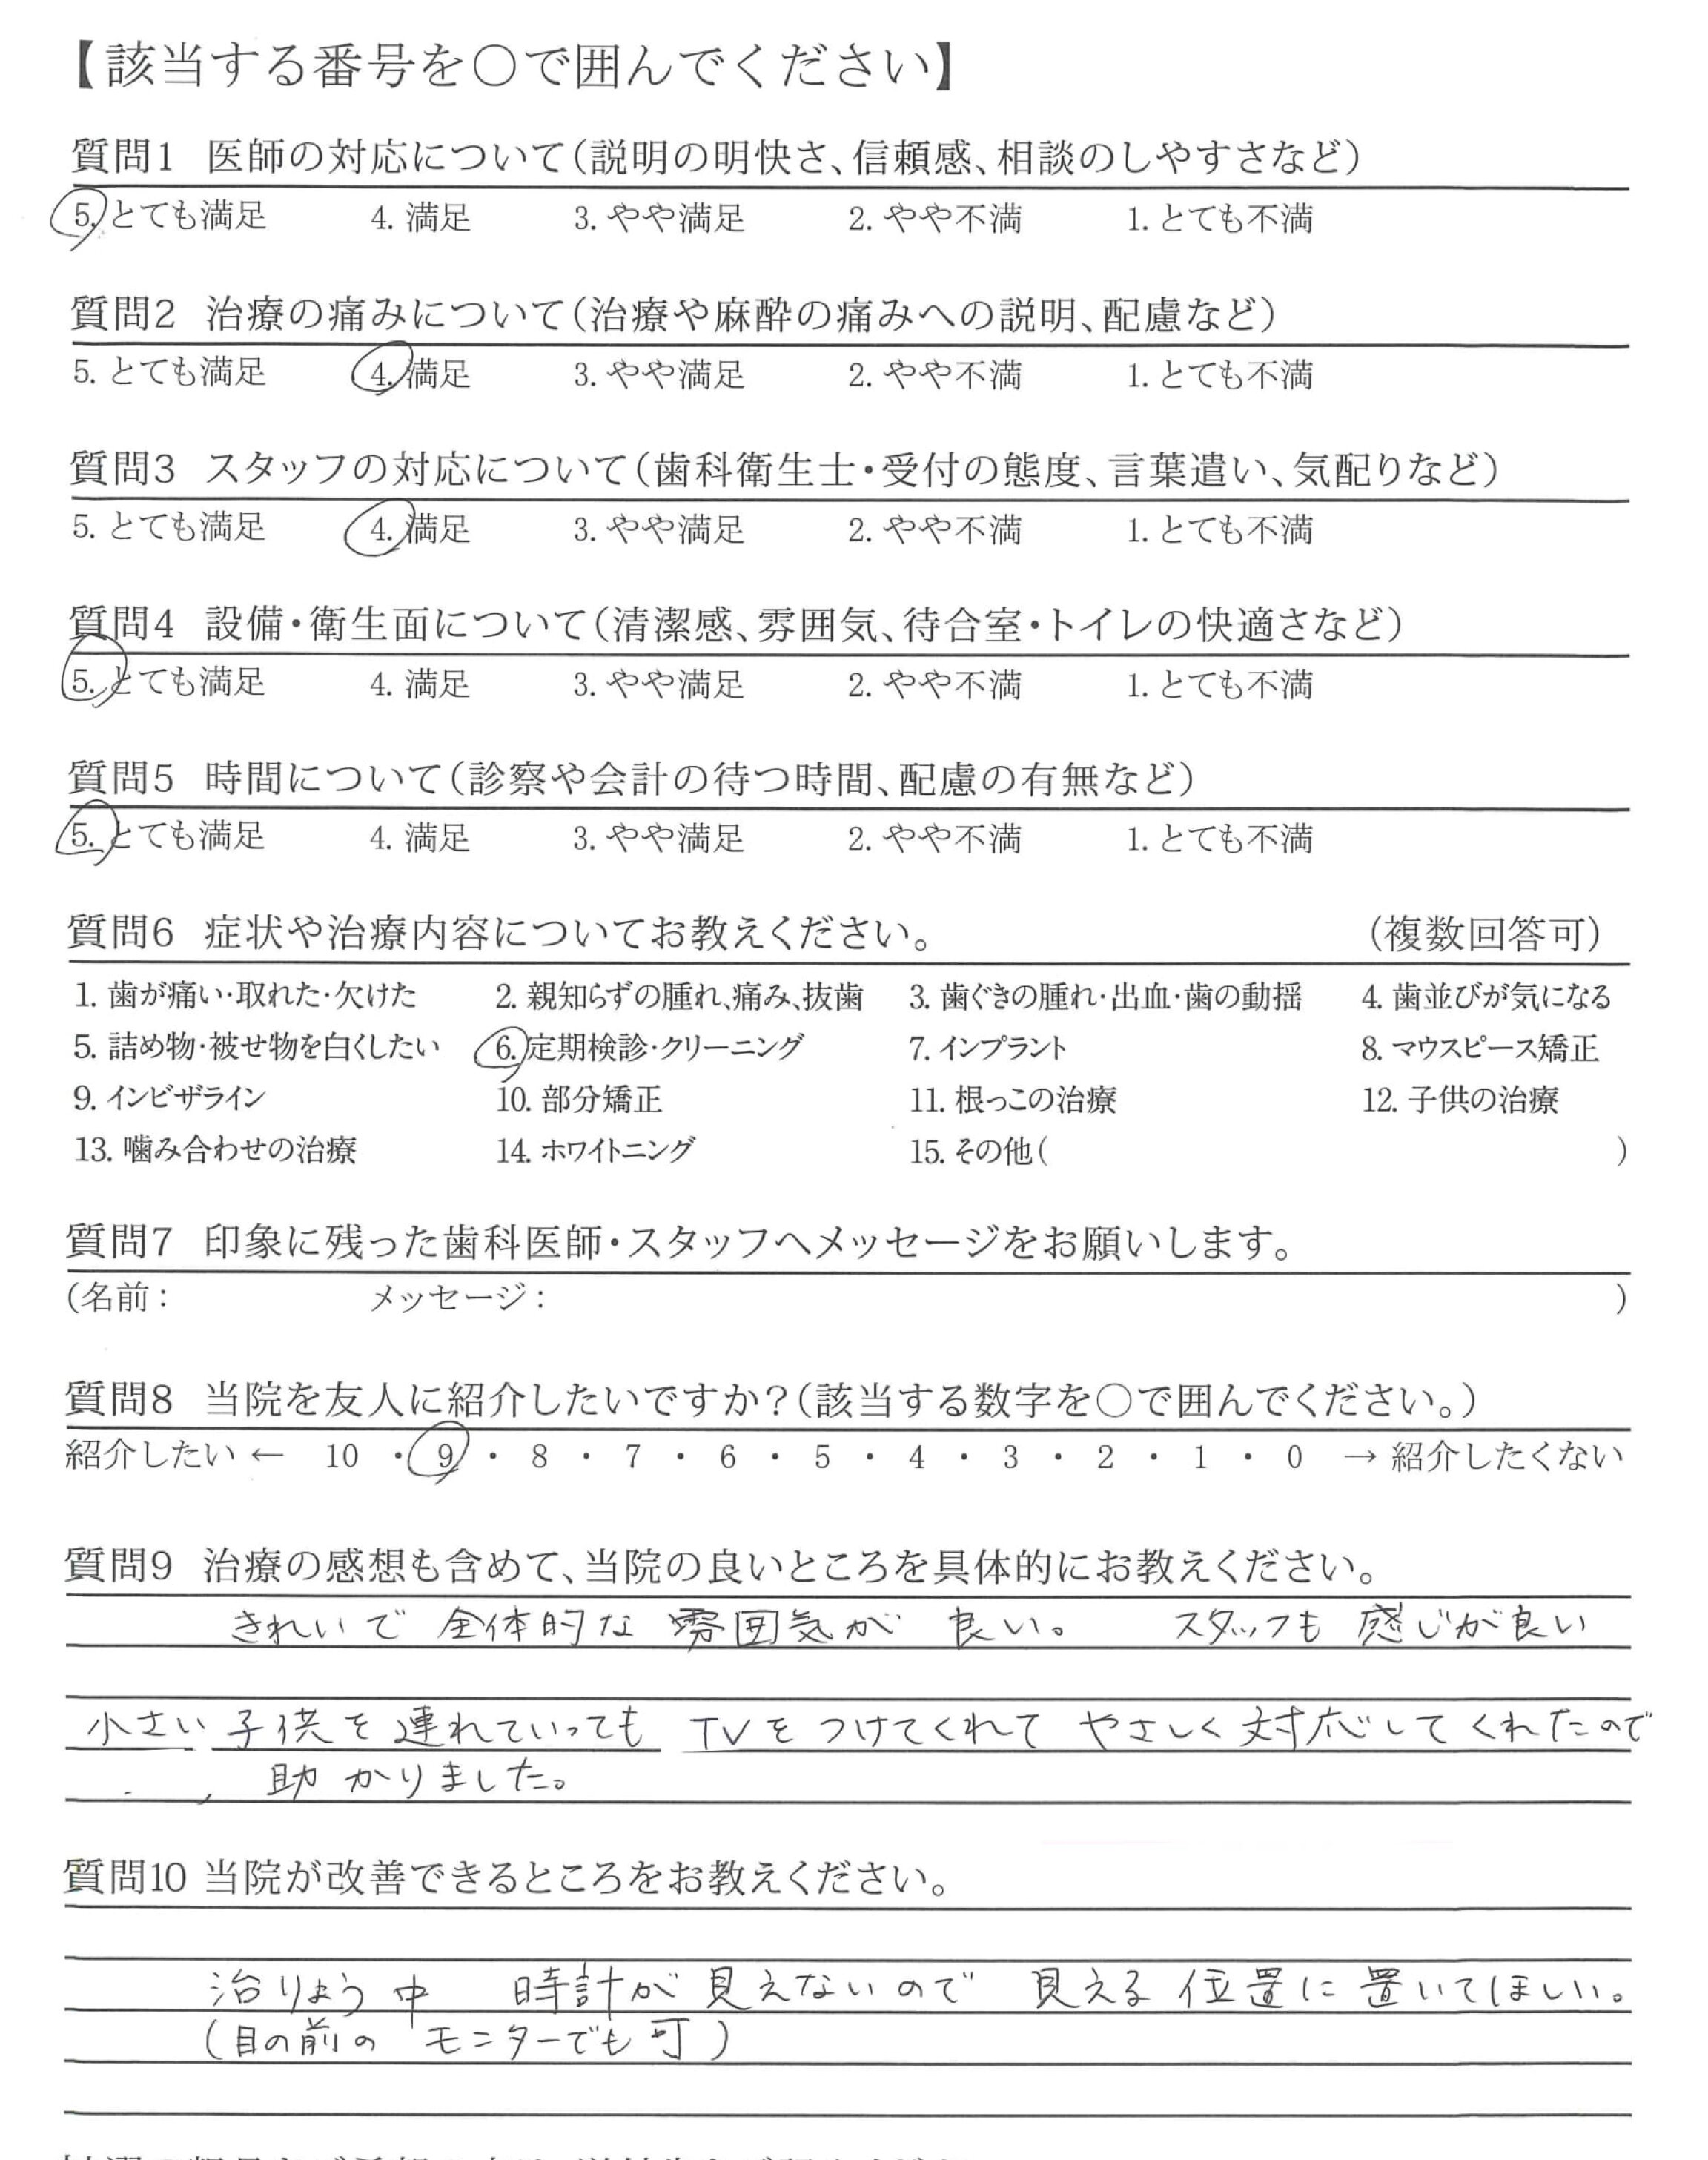 【該当する番号を○で囲んでください】
質問1 医師の対応について(説明の明快さ、信頼感、相談のしやすさなど)
5. とても満足 4. 満足 3. やや満足 2. やや不満 1. とても不満
質問2 治療の痛みについて(治療や麻酔の痛みへの説明、配慮など)
5. とても満足 4. 満足 3. やや満足 2. やや不満 1. とても不満
質問3 スタッフの対応について(歯科衛生士・受付の態度、言葉遣い、気配りなど)
5. とても満足 4. 満足 3. やや満足 2. やや不満 1. とても不満
質問4 設備・衛生面について(清潔感、雰囲気、待合室・トイレの快適さなど)
5. とても満足 4. 満足 3. やや満足 2. やや不満 1. とても不満
質問5 時間について(診察や会計の待つ時間、配慮の有無など)
5. とても満足 4. 満足 3. やや満足 2. やや不満 1. とても不満
質問6 症状や治療内容についてお教えください。 (複数回答可)
1. 歯が痛い・取れた・欠けた 2. 親知らずの腫れ、痛み、抜歯 3. 歯ぐきの腫れ・出血・歯の動揺 4. 歯並びが気になる
5. 詰め物・被せ物を白くしたい 6. 定期検診・クリーニング 7. インプラント 8. マウスピース矯正
9. インビザライン 10. 部分矯正 11. 根っこの治療 12. 子供の治療
13. 噛み合わせの治療 14. ホワイトニング 15. その他( )
質問7 印象に残った歯科医師・スタッフへメッセージをお願いします。
(名前: メッセージ: )
質問8 当院を友人に紹介したいですか?(該当する数字を○で囲んでください。)
紹介したい ← 10 ・ 9 ・ 8 ・ 7 ・ 6 ・ 5 ・ 4 ・ 3 ・ 2 ・ 1 ・ 0 → 紹介したくない
質問9 治療の感想も含めて、当院の良いところを具体的にお教えください。
きれいで 全体的な 雰囲気が 良い。 スタッフも 感じが良い
小さい 子供を 連れていっても TVを つけてくれて やさしく 対応してくれたので
助かりました。
質問10 当院が改善できるところをお教えください。
治りょう中 時計が 見えないので 見える 位置に 置いてほしい。
(目の前の モニターでも 可)